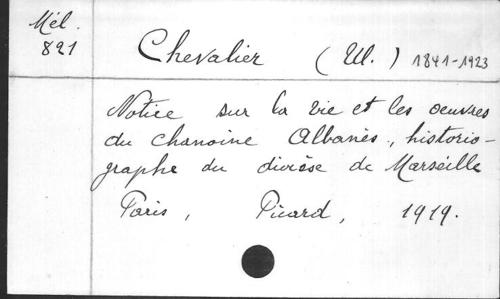 Mél.
821
Chevalier (Ul.) 1841-1923
Notice sur la vie et les oeuvres
du chanoine Albanès, historio-
graphe du diocèse de Marseille
Paris, Picard, 1919.